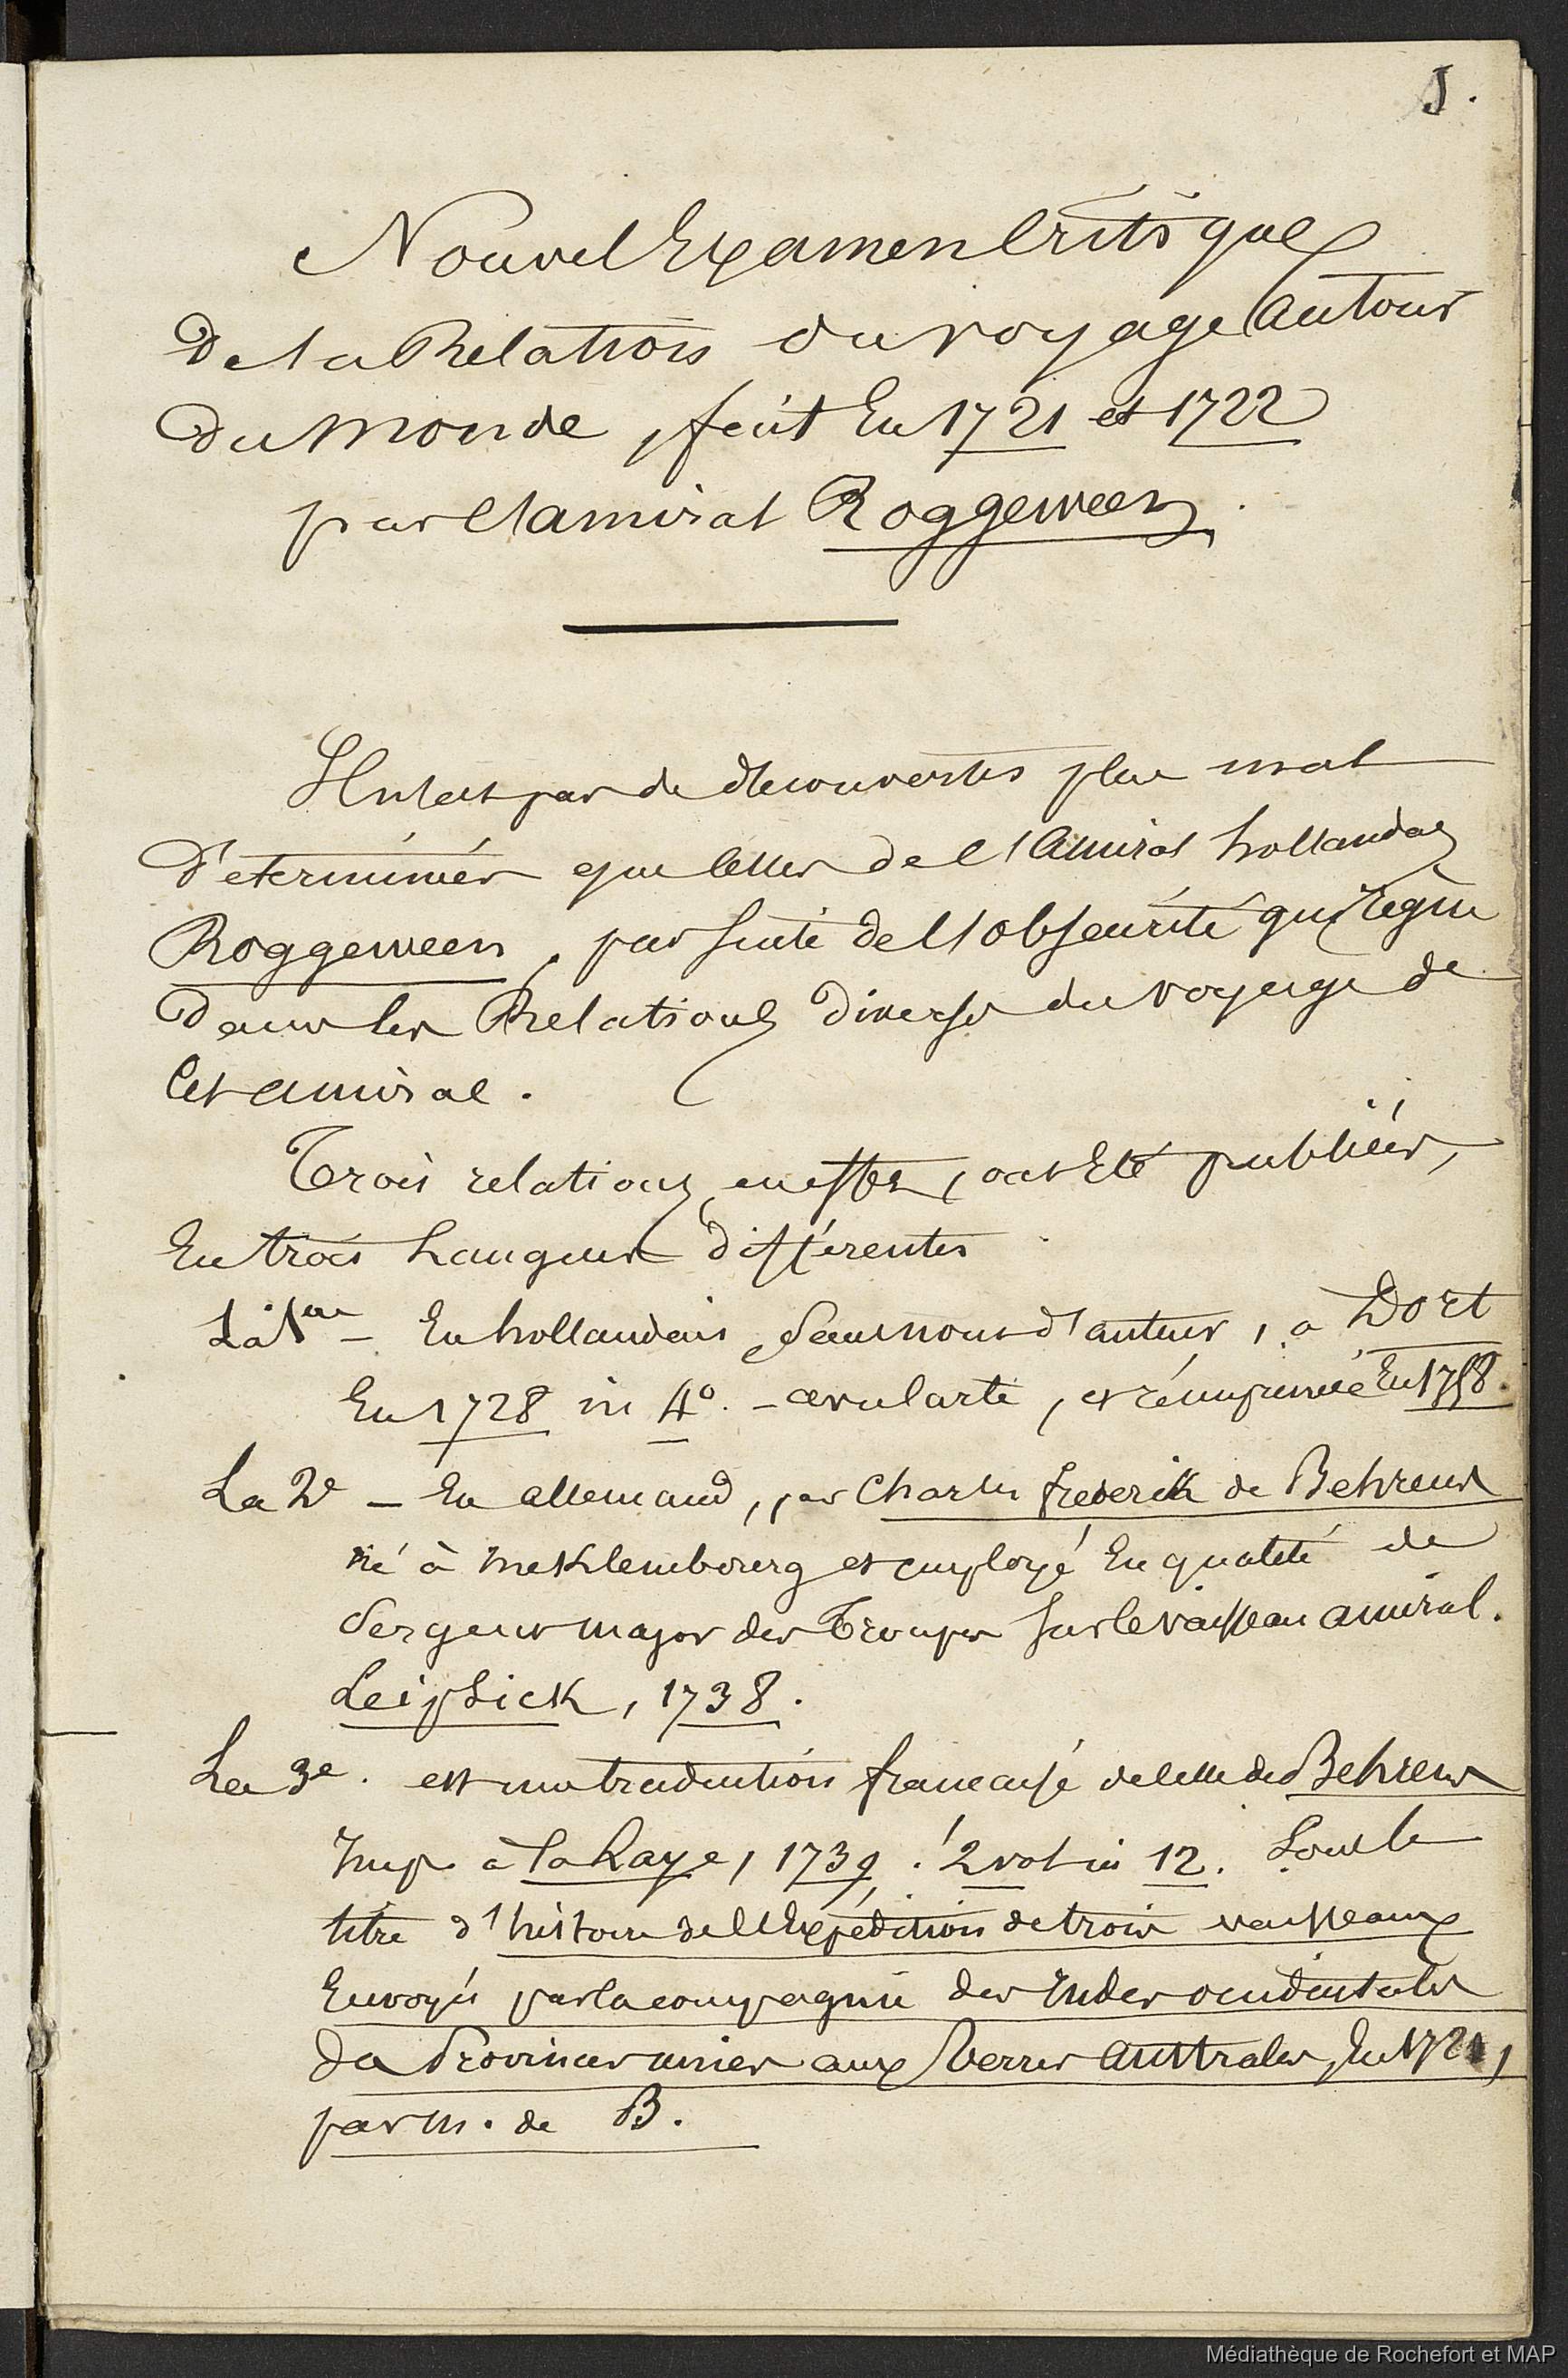 J.
Nouvel Examen Critique
De la Relation du voyage Autour
Du Monde, fait En 1721 et 1722
par l'amiral Roggeween.
Il n'est pas de decouvertes plus mal
Déterminées que celles de l'Amiral hollandais
Roggeween, par suite de l'obscurité qui règne
Dans les Relations Diverses du voyage de
Cet amiral.
Trois relations, en effet, ont Eté publiées,
En trois Langues différentes
La 1ère – En hollandais, sans nom d'auteur, à Dort
En 1728 in 4°. – avec carte, et réimprimée En 1758.
La 2e – En allemand, par Charles frederik de Behrens
né à Meklembourg et employé En qualité de
Sergent major des Troupes sur le vaisseau amiral.
Leipsick, 1738.
La 3e. est une traduction française de celle de Behrens
Imp. à La haye, 1739. 2 vol in 12. Sous le
titre d'histoire de l'Expédition de trois vaisseaux
Envoyés par la compagnie des Indes occidentales
des Provinces unies aux Terres Australes, En 1721,
par m. de B.
Médiathèque de Rochefort et MAP